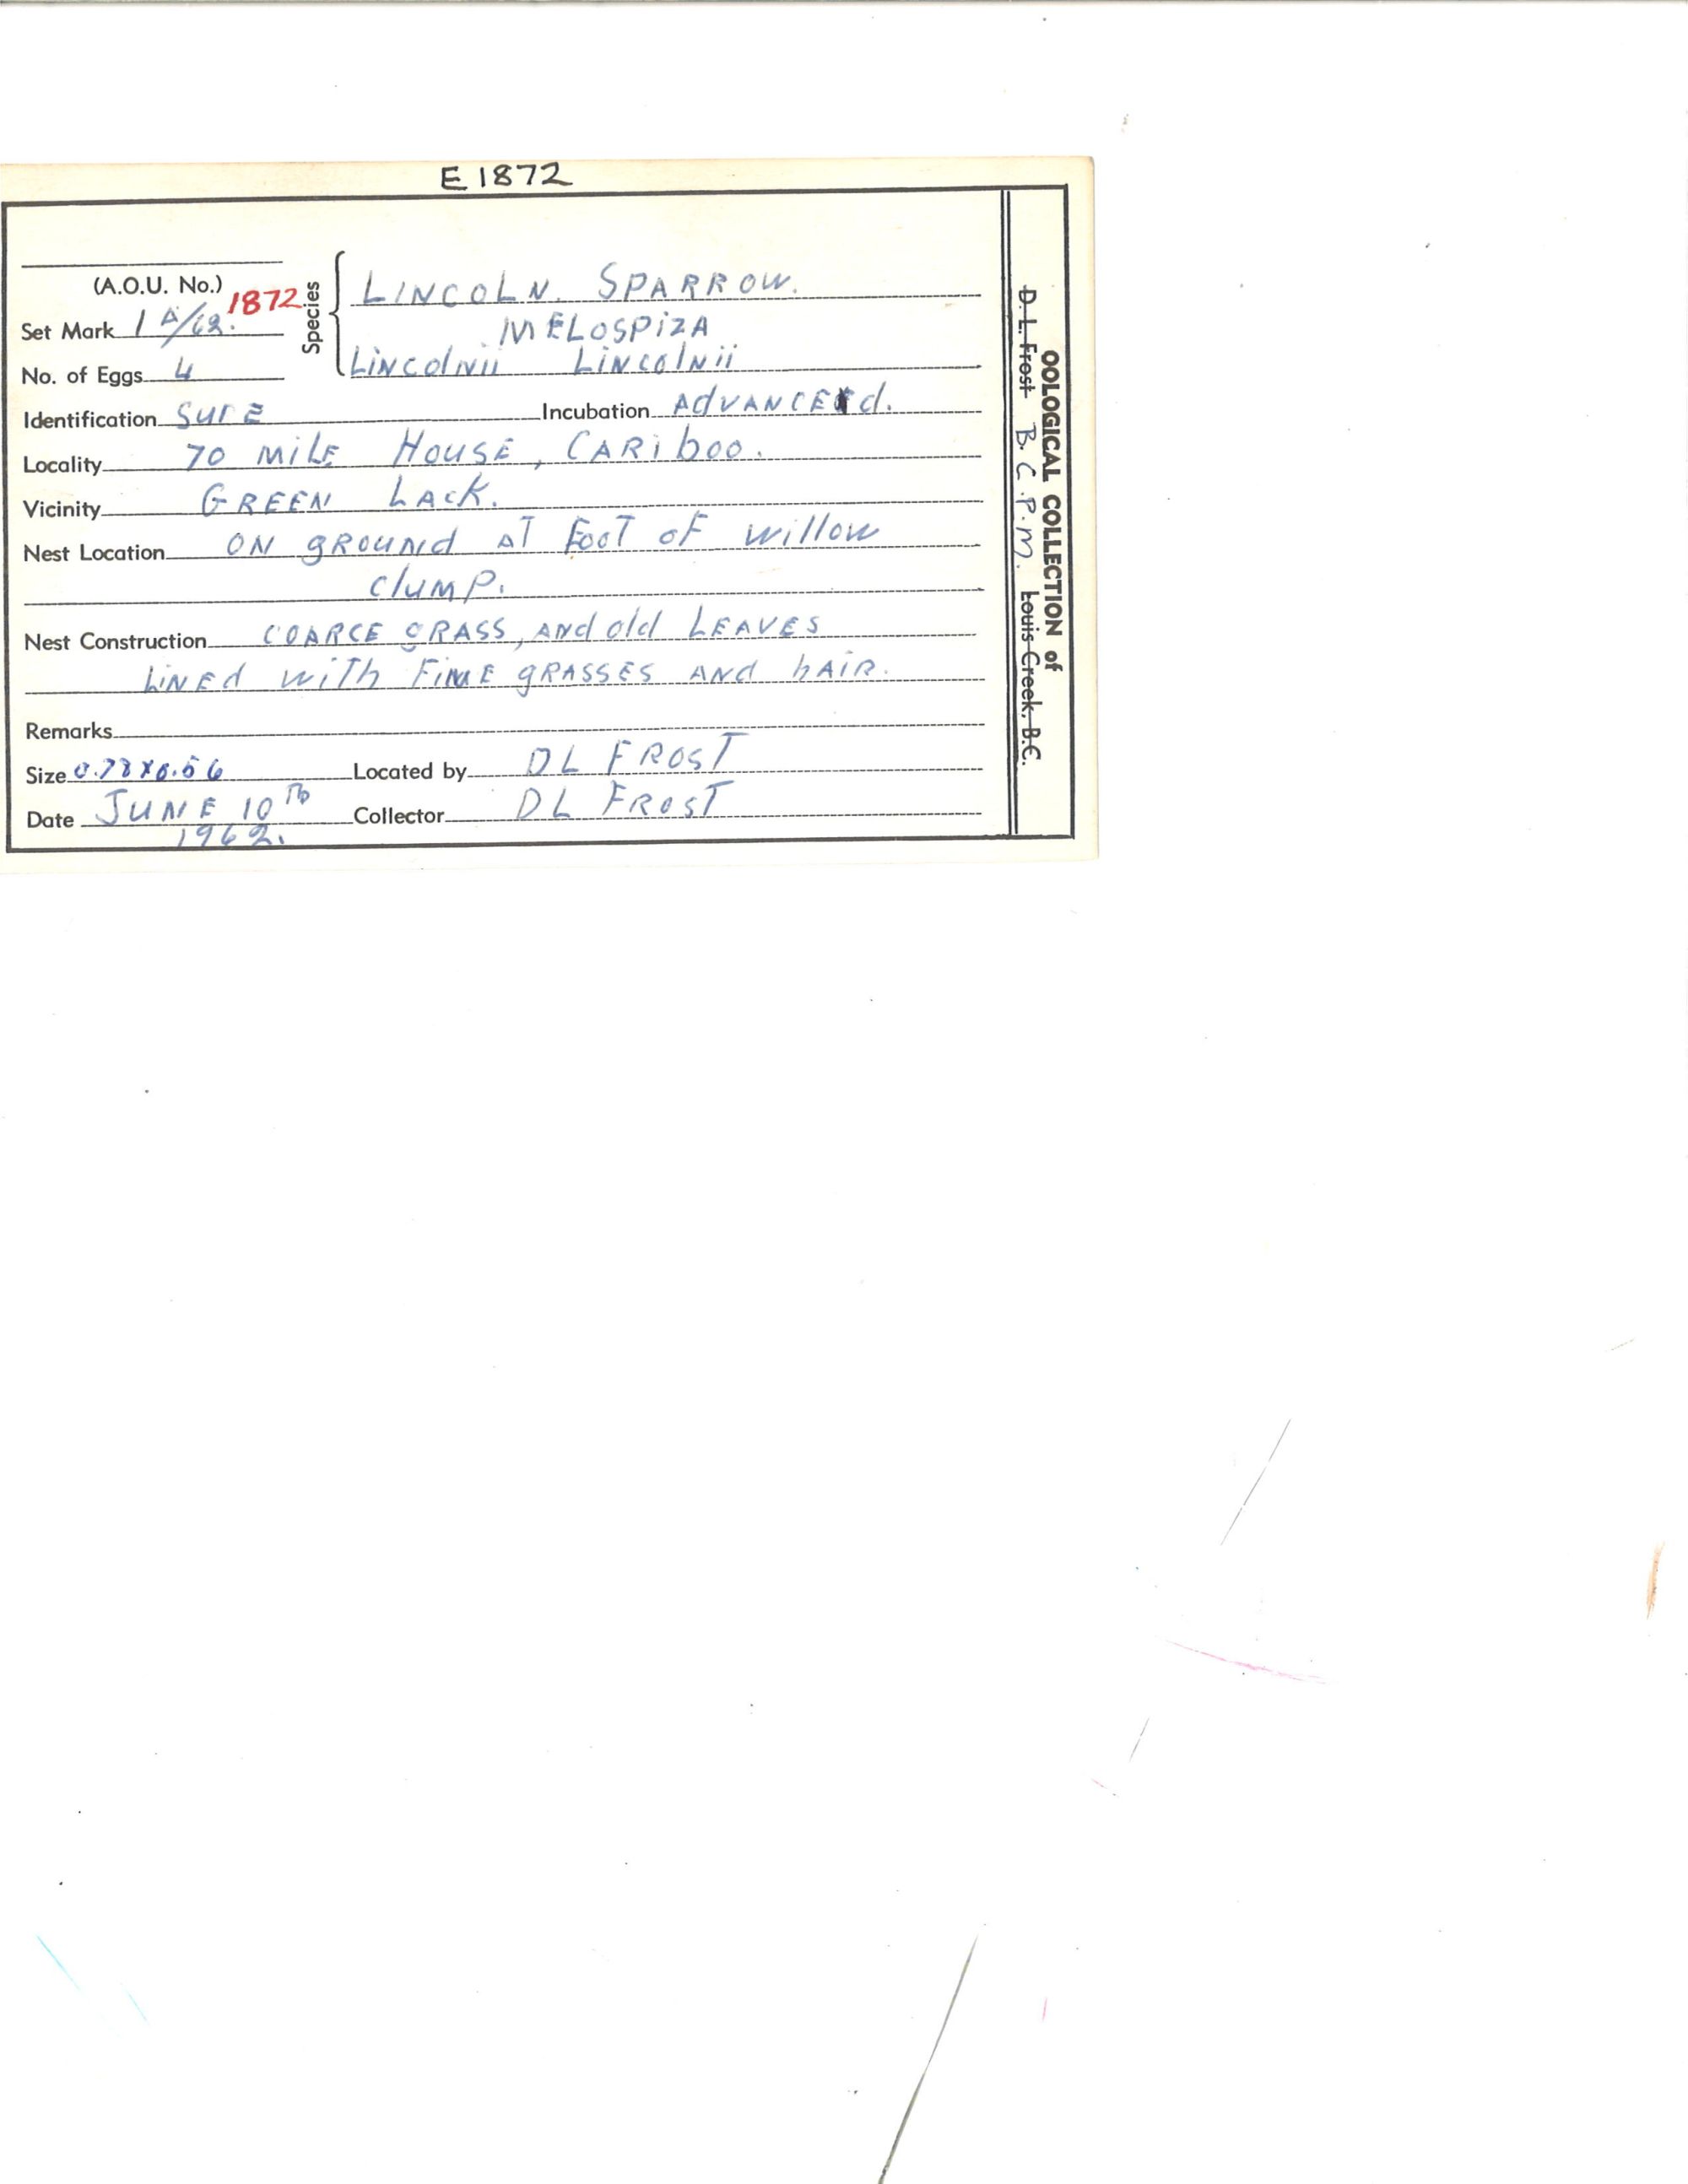 E 1872
(A.O.U. No.) 1872
Set Mark 1 A/62.
No. of Eggs 4
Species
LINCOLN. SPARROW.
MELOSPIZA
LINCOLNII LINCOLNII
Identification SURE Incubation ADVANCED.
Locality 70 MILE HOUSE, CARIBOO.
Vicinity GREEN LACK.
Nest Location ON GROUND AT FOOT OF WILLOW
CLUMP.
Nest Construction COARCE GRASS, AND OLD LEAVES
LINED WITH FINE GRASSES AND HAIR.
Remarks
Size 0.78 X 0.56 Located by DL FROST
Date JUNE 10TH Collector DL FROST
1962.
OOLOGICAL COLLECTION of
D. L. Frost B.C.P.M. Louis Creek, B.C.